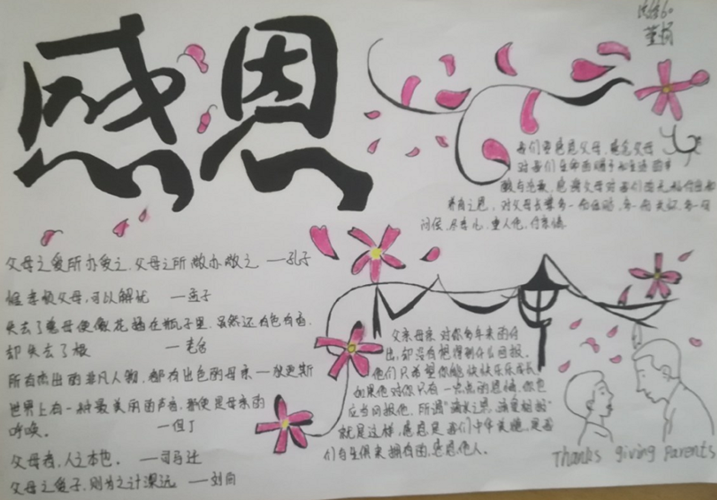 感恩
父母之爱所亦爱之,父母之所敬亦敬之 —孔子
惟孝顺父母,可以解忧 —孟子
失去了慈母便像花插在瓶子里,虽然还有色有香,
却失去了根 —老舍
所有杰出的非凡人物,都有出色的母亲—狄更斯
世界上有一种最美丽的声音,那便是母亲的
呼唤。 —但丁
父母者,人之本也。 —司马迁
父母之爱子,则为之计深远 —刘向
我们要感恩父母,感恩父母
对我们生命的赐予和生活的
养育之恩,对父母长辈多一
问候
父亲母亲 对你多年来的付
出,却没有想得到什么回报,
他们只希望你能快快乐乐成长
如果他对你只有一点点的恩情,你也
应当回报他,所谓"滴水之恩,涌泉相报"
就是这样,感恩是我们中华美德,是我
们与生俱来拥有的,感恩他人。
Thanks giving Parents